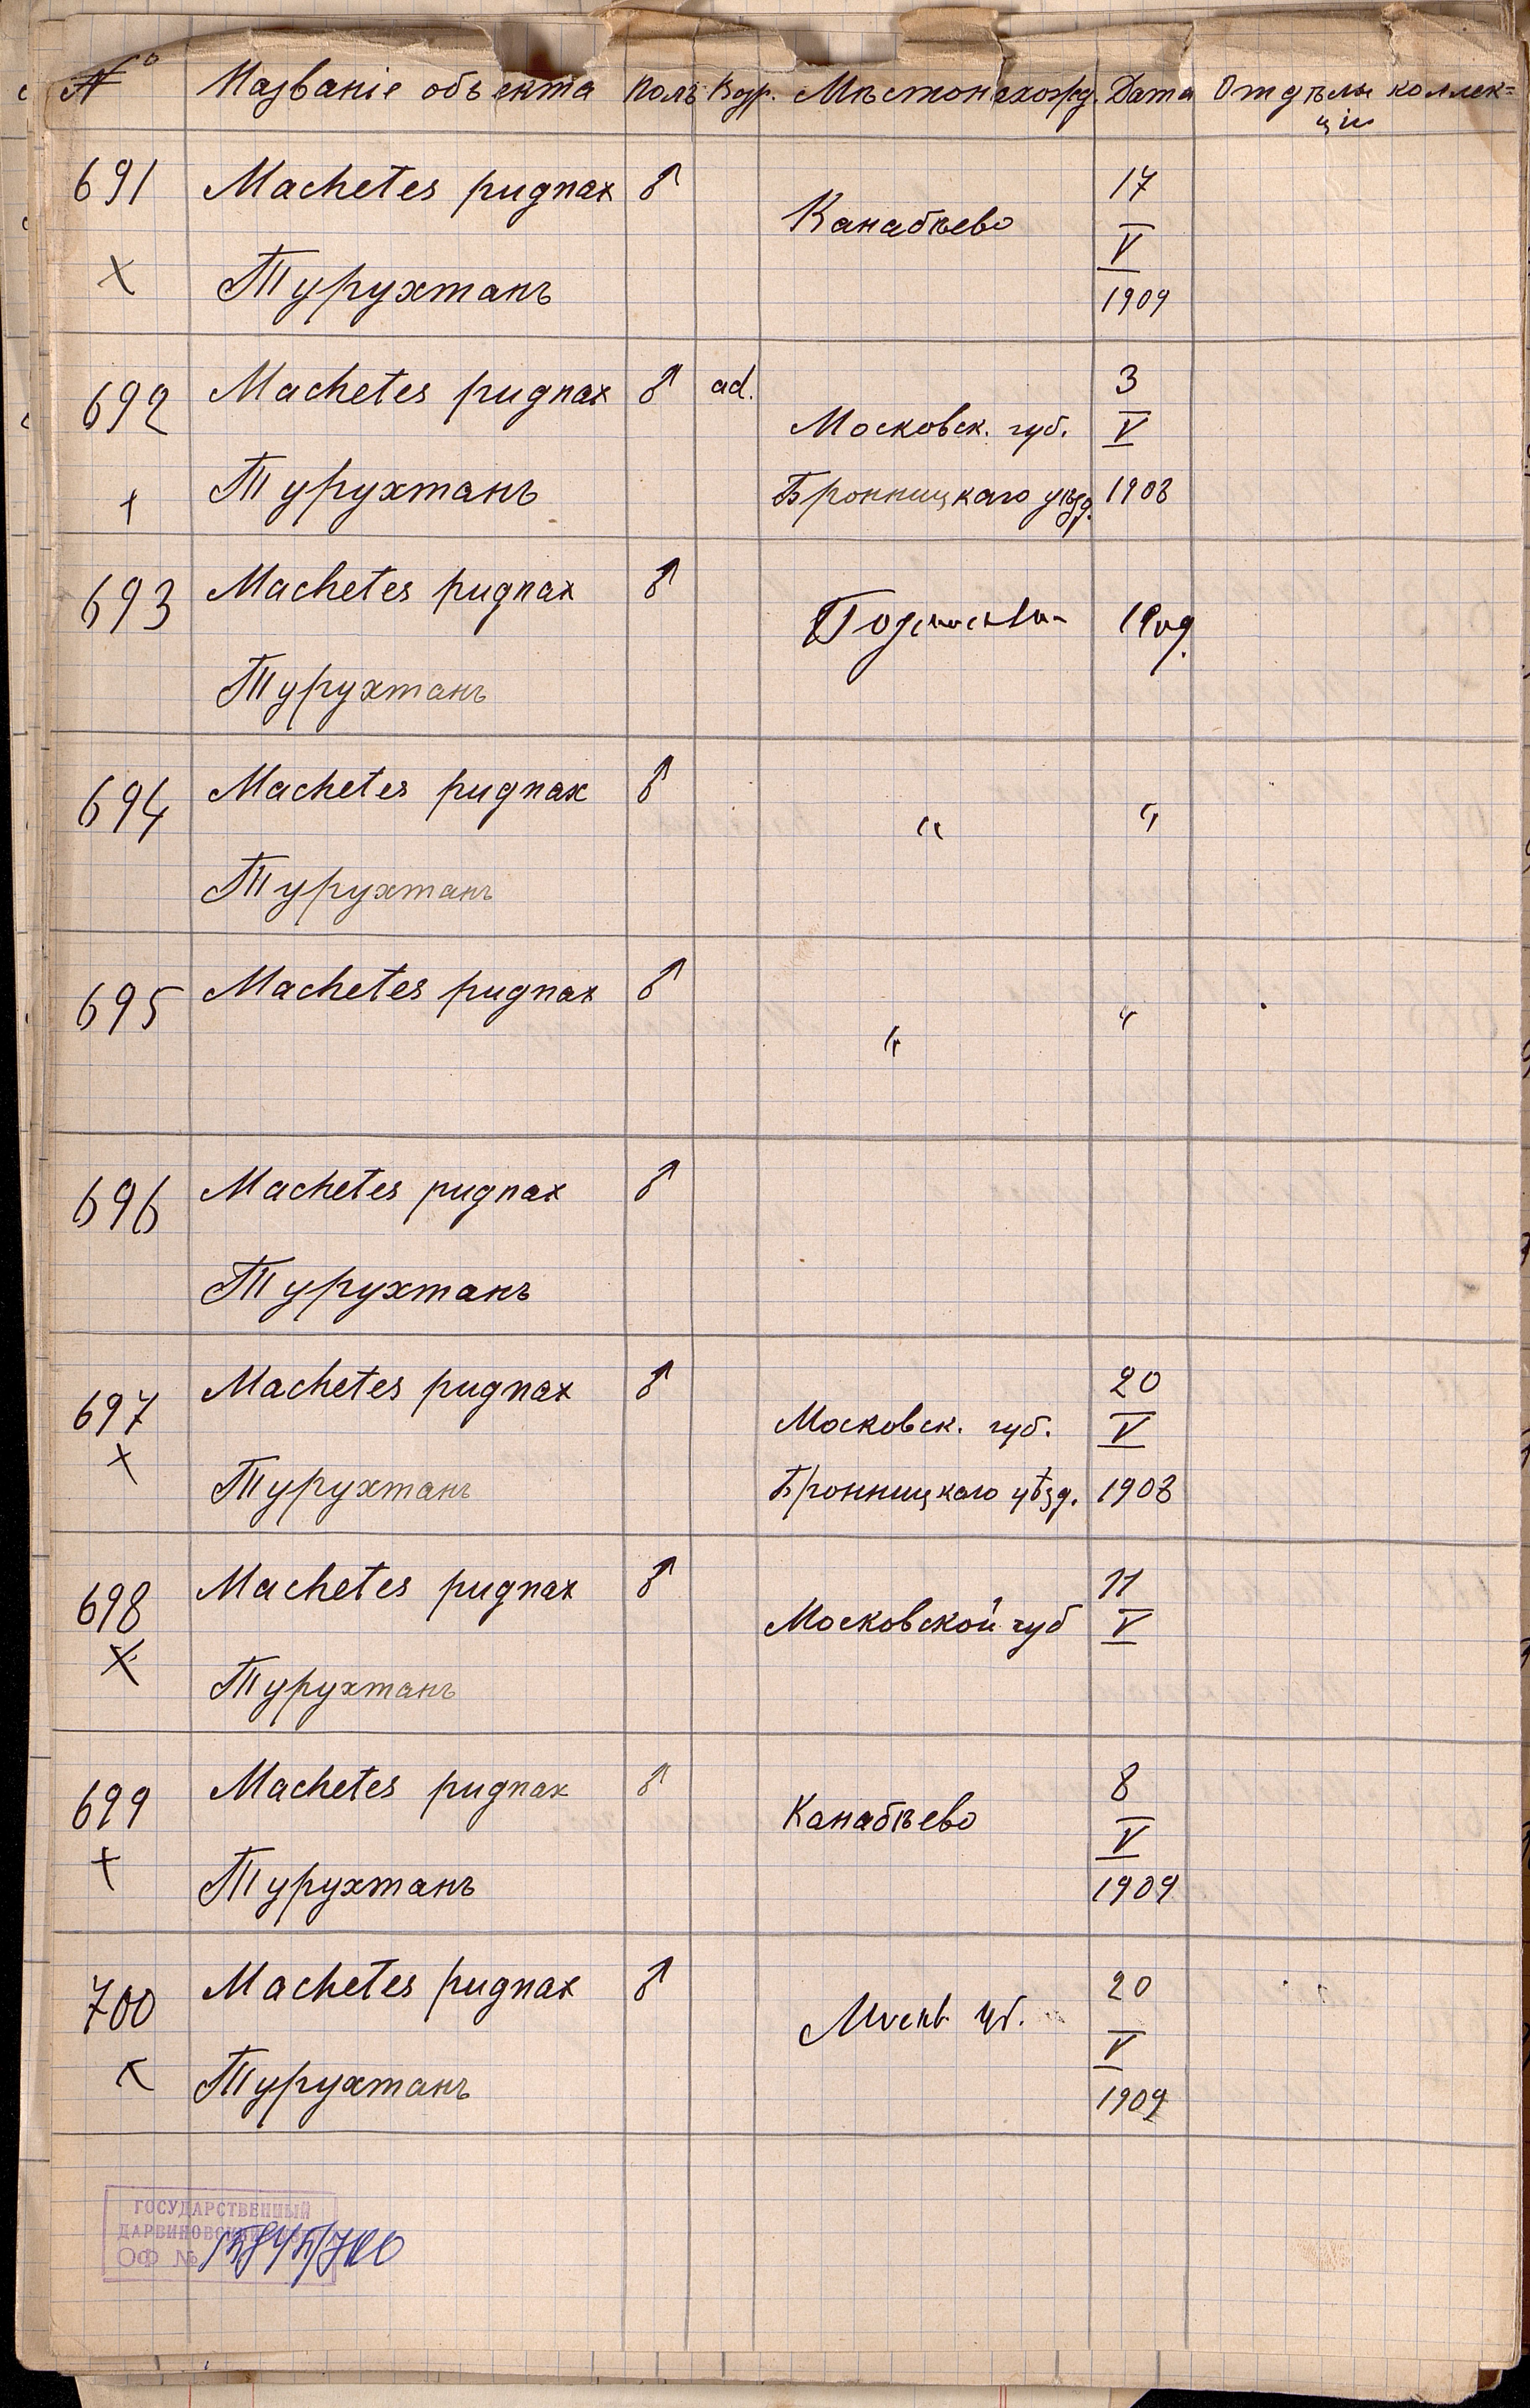 № Названіе объекта Полъ Возр. Мѣстонахожд. Дата Отдѣлы коллек=
ціи
691 Machetes pugnax ♂ Канабѣево 17
V
x Турухтанъ 1909
692 Machetes pugnax ♂ ad. 3
Московск. губ. V
x Турухтанъ Бронницкаго уѣзд. 1908
693 Machetes pugnax ♂
Турухтанъ
694 Machetes pugnax ♂ " "
Турухтанъ
695 Machetes pugnax ♂ " "
696 Machetes pugnax ♂
Турухтанъ
697 Machetes pugnax ♂ 20
Московск. губ. V
x Турухтанъ Бронницкаго уѣзд. 1908
698 Machetes pugnax ♂ 11
Московской губ V
x Турухтанъ
699 Machetes pugnax ♂ 8
Канабѣево V
x Турухтанъ 1909
700 Machetes pugnax ♂ 20
V
x Турухтанъ 1909
ГОСУДАРСТВЕННЫЙ
ОФ №